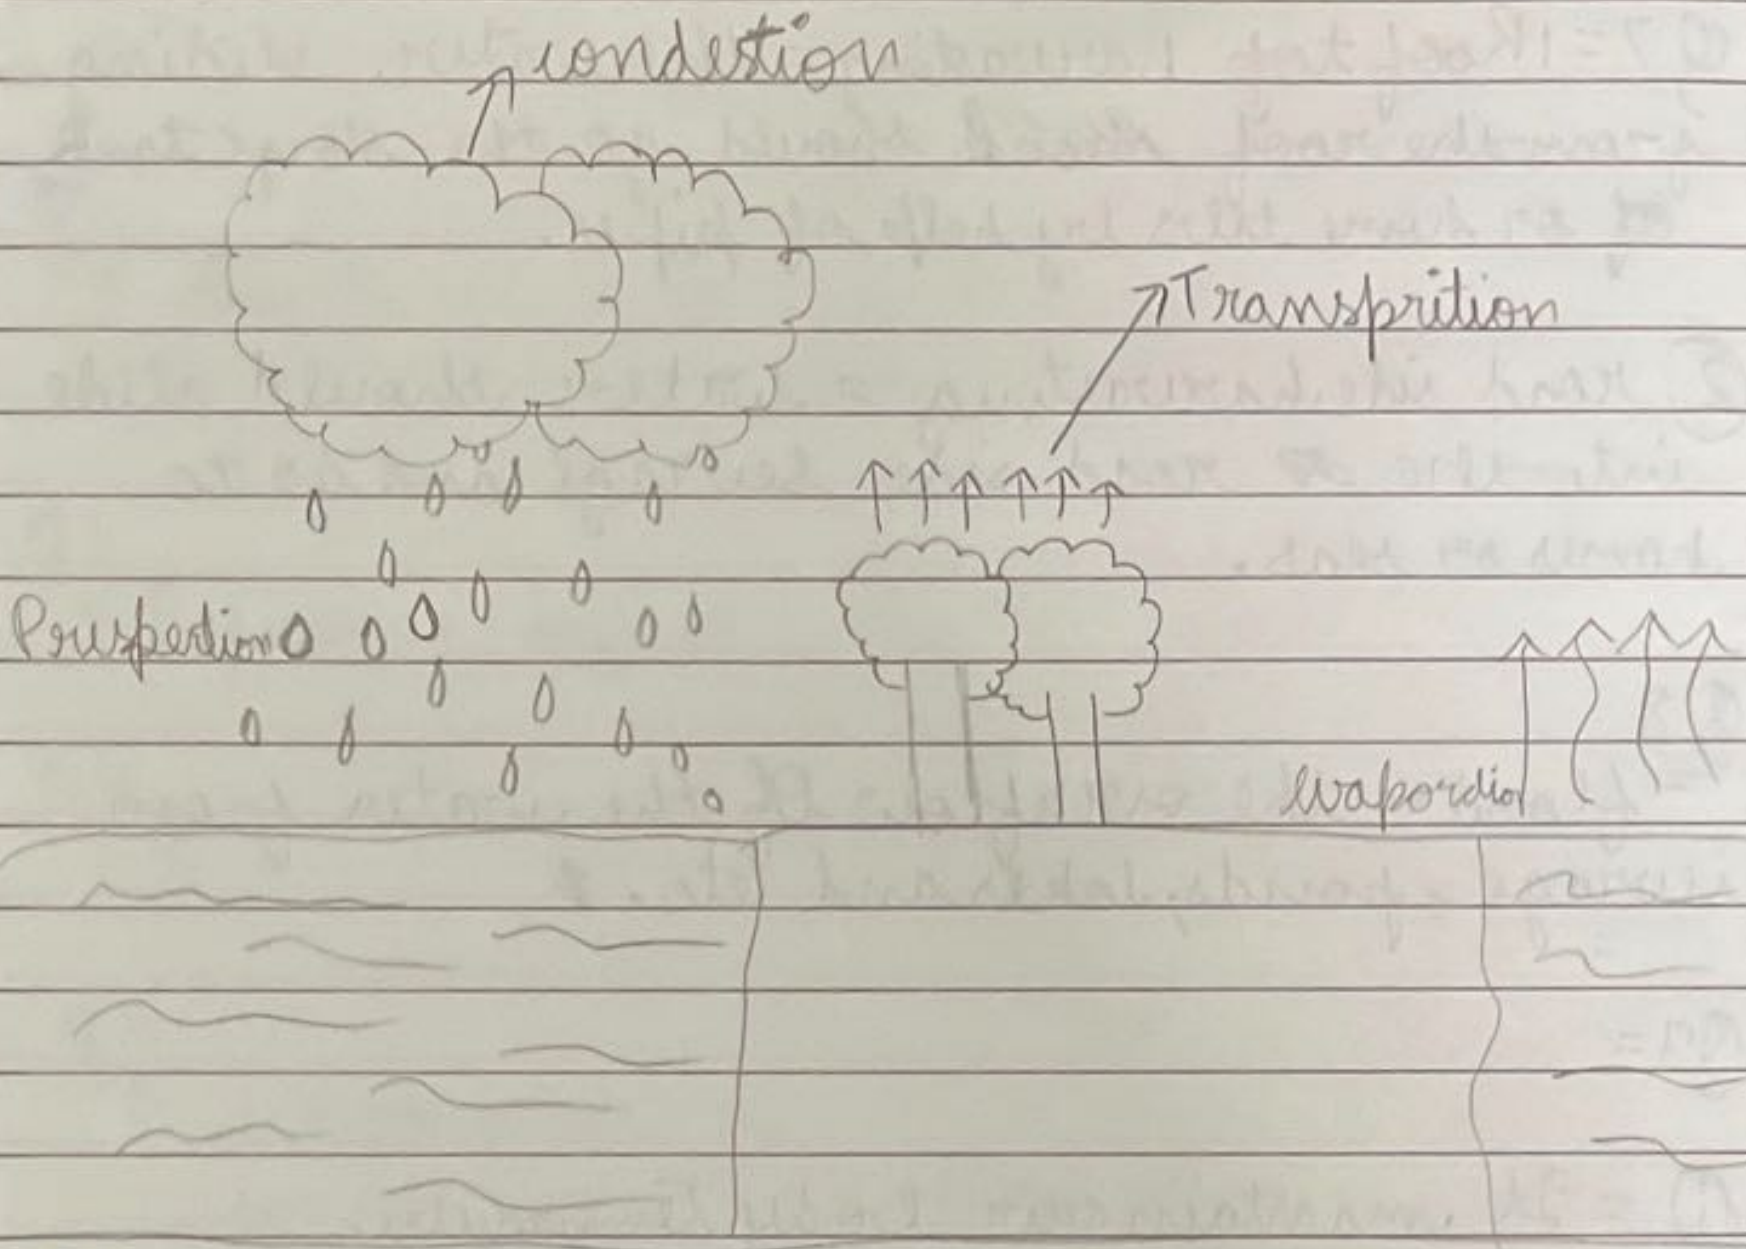 condestion
Transprition
Pruspection
evapordion